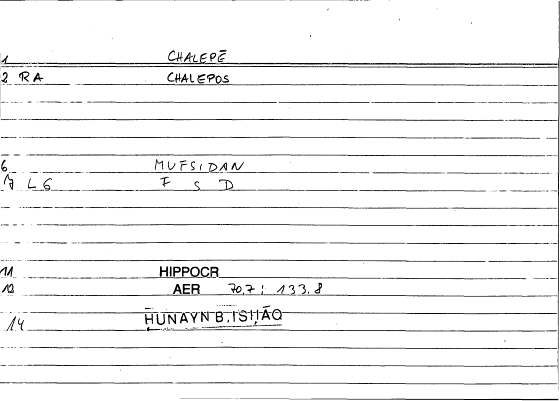 1 CHALEPĒ
2 RA CHALEPOS
6 MUFSIDAN
7 LG F S D
11 HIPPOCR
12 AER 70,7 ; 133.8
14 ḤUNAYN B. ISḤĀQ